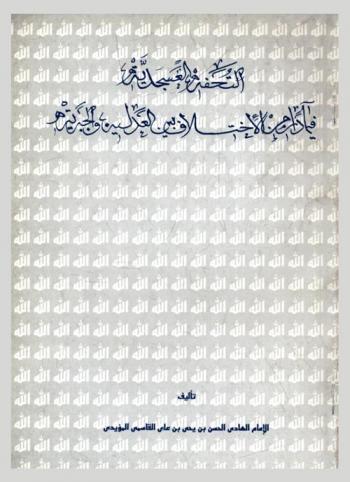 التحفة العسجدية
فيما دار من الاختلاف بين العدلية والجبرية
تأليف
الإمام الهادي الحسن بن يحيى بن علي القاسمي المؤيدي